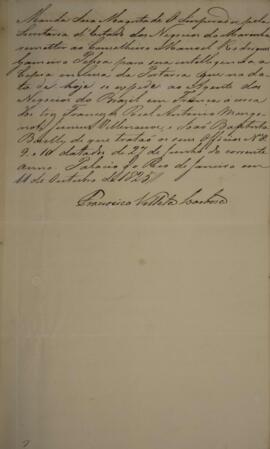 Manda Sua Magestade O Imperador pela
Secretaria d'Estado dos Negocios da Marinha
remetter ao Conselheiro Manoel Rodrigues
Gameiro Pessoa para sua intelligencia a
Copia inclusa da Portaria que na da-
ta de hoje se expede ao Agente dos
Negocios do Brasil em França a cerca
dos Francezes Antonio
e João Baptista
de que tratão os seus Officios Nos
9 e 10 datados de 27 de Junho do corrente
anno. Palacio do Rio de Janeiro em
11 de Outubro de 1825
Francisco Villela Barboza